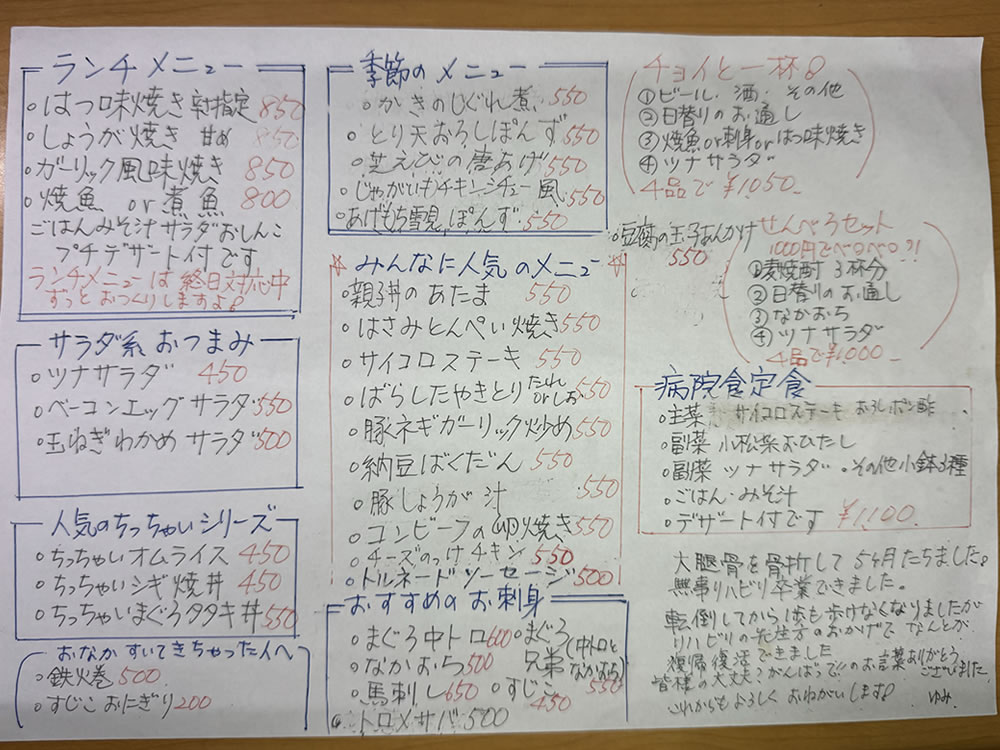 ランチメニュー
はつ味焼き 部指定 850
しょうが焼き 甘め 850
ガーリック風味焼き 850
焼魚 or 煮魚 800
ごはんみそ汁サラダおしんこ
プチデザート付です
ランチメニューは終日対応中
ずっとおつくりしますよ!
サラダ系おつまみ
ツナサラダ 450
ベーコンエッグサラダ 550
玉ねぎわかめサラダ 500
人気のちっちゃいシリーズ
ちっちゃいオムライス 450
ちっちゃいシギ焼丼 450
ちっちゃいまぐろタタキ丼 550
おなかすいてきちゃった人へ
鉄火巻 500
すじこおにぎり 200
季節のメニュー
かきのしぐれ煮 550
とり天おろしぽんず 550
芝えびの唐あげ 550
じゃがいもチキンシチュー風 550
あげもち雪見ぽんず 550
みんなに人気のメニュー
親子丼のあたま 550
はさみとんぺい焼き 550
サイコロステーキ 550
ばらしたやきとり たれ or しお 550
豚ネギガーリック炒め 550
納豆ばくだん 550
豚しょうが汁 550
コンビーフの卵焼き 550
チーズのっけチキン 550
トルネードソーセージ 500
おすすめのお刺身
まぐろ中トロ 600
なかおち 500
馬刺し 650
トロメサバ 500
まぐろ兄弟(中トロとなかおち) 550
すじこ 450
チョイと一杯
①ビール・酒・その他
②日替りのお通し
③焼魚or刺身orはつ味焼き
④ツナサラダ
4品で ¥1050
豆腐の玉子あんかけ 550
せんべろセット
1000円でベロベロ?!
①麦焼酎 3杯分
②日替りのお通し
③なかおち
④ツナサラダ
4品で¥1000
病院食定食
主菜 サイコロステーキ おろしポン酢
副菜 小松菜おひたし
副菜 ツナサラダ・その他小鉢3種
ごはん・みそ汁
デザート付です ¥1,100
大腿骨を骨折して 5ヶ月たちました。
無事リハビリ卒業できました。
転倒してから1歩も歩けなくなりましたが
リハビリの先生方のおかげで なんとか
復帰復活できました
皆様の大丈夫?がんばって!のお言葉ありがとうございました
これからもよろしくおねがいします! ゆみ